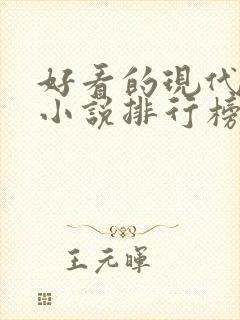 好看的現代
小說排行榜
王元暉